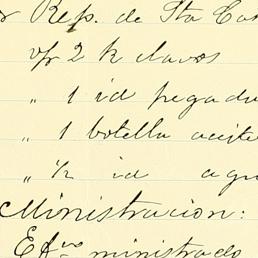 Rep. de Sta Ca
v/r 2 k clavos
" 1 id pegadu
" 1 botella aceite
" 1/2 id agu
Ministracion:
Ef.vo ministrado